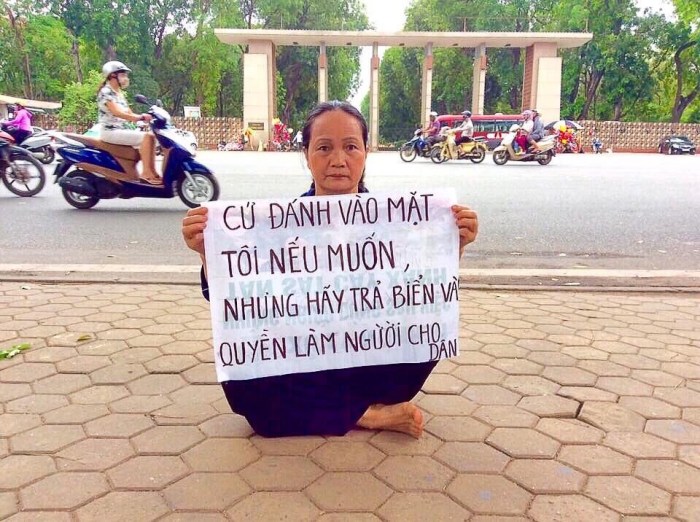 CỨ ĐÁNH VÀO MẶT
TÔI NẾU MUỐN,
NHƯNG HÃY TRẢ BIỂN VÀ
QUYỀN LÀM NGƯỜI CHO
DÂN